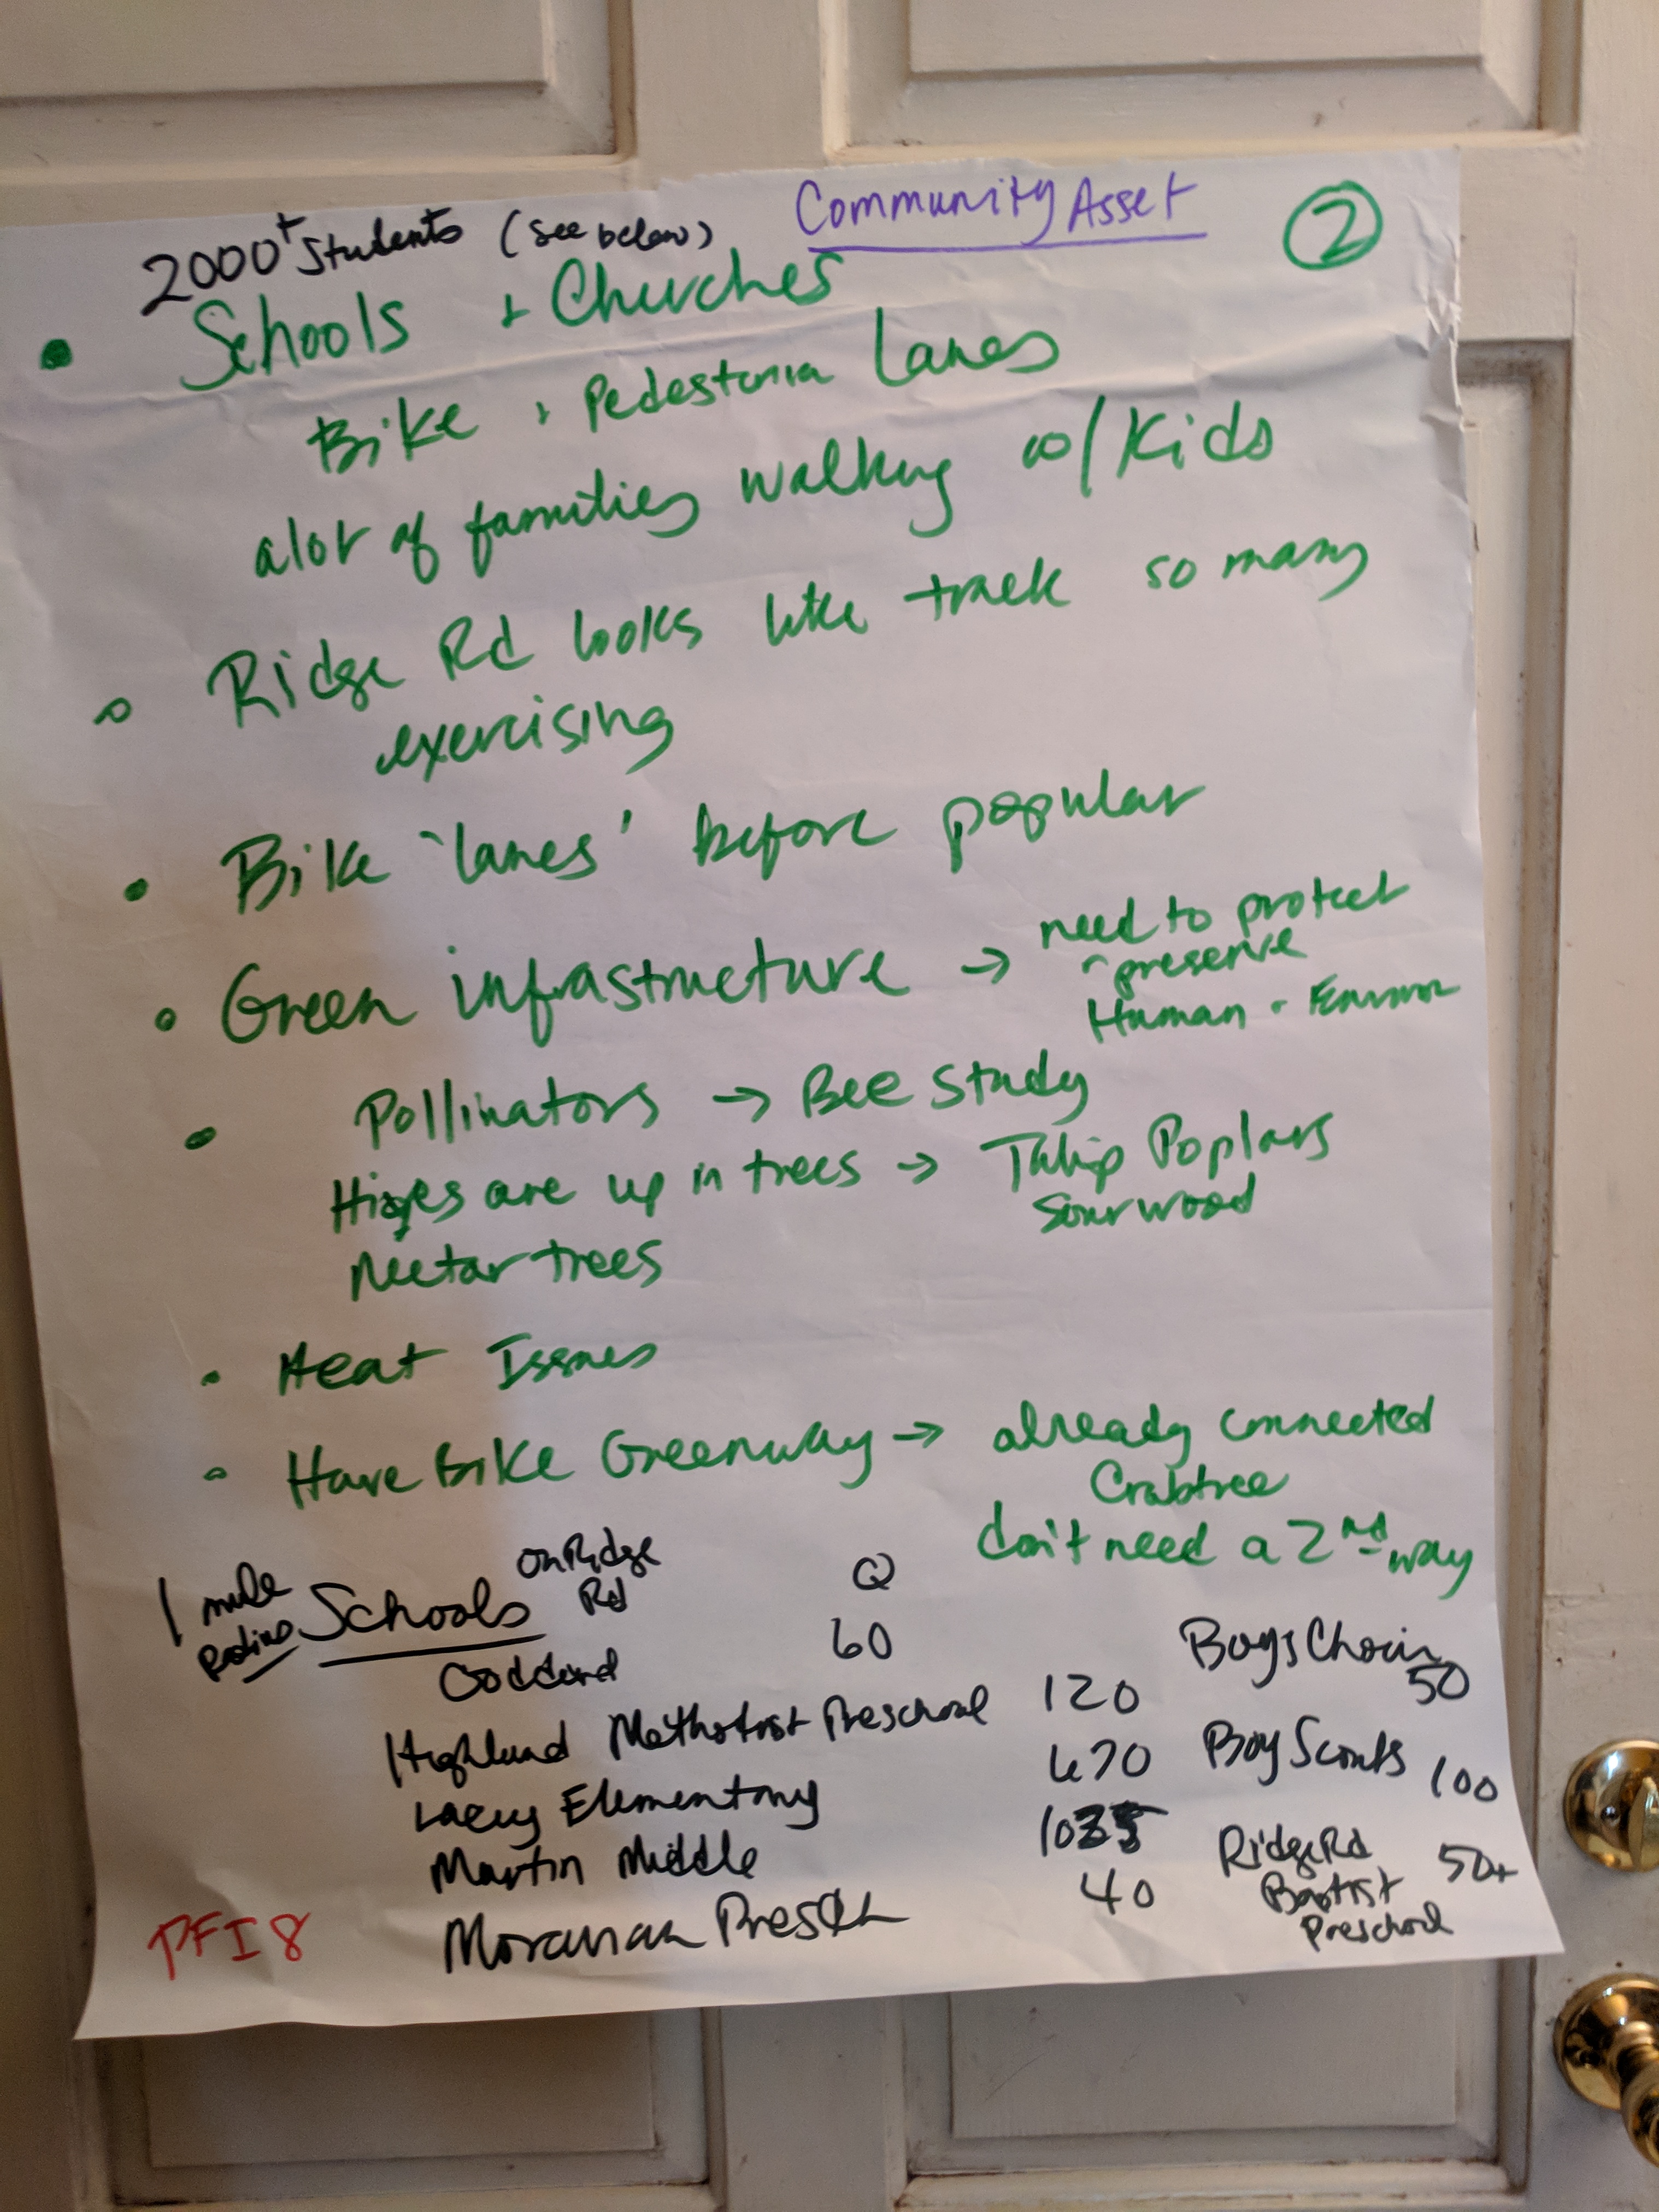 Community Asset
2
2000+ Students (see below)
• Schools + Churches
Bike + Pedestoria Lanes
alot of families walking w/ Kids
• Ridge Rd looks like track so many
exercising
• Bike 'lanes' before popular
• Green infrastructure → need to protect
preserve
Human + Environ
• Pollinators → Bee Study
Hives are up in trees → Tulip Poplars
Sourwood
Nectar trees
• Heat Issues
• Have Bike Greenway → already connected
Crabtree
don't need a 2nd way
1 mile
Radius
Schools
on Ridge
Rd
Goddard 60
Highland Methodist Preschool 120
Lacey Elementary 670
Martin Middle
Presch 40
Boys Choir
50
Boy Scouts 100
Ridge Rd 50+
Baptist
Preschool
PFI 8